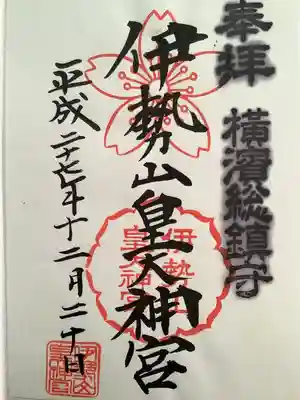 奉拝 横濱総鎮守
伊勢山皇大神宮
平成二十七年十二月二十日
伊勢山
皇大神宮